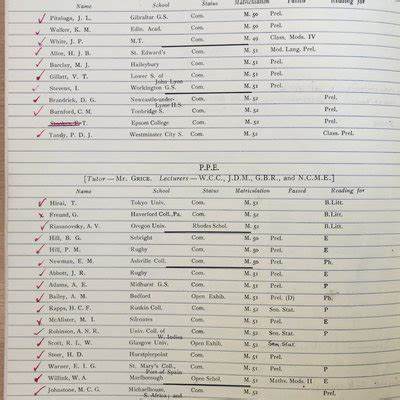 Name School Status Matriculation Passed Reading for
Pitaluga, J. L. Gibraltar G.S. Com. M. 50 Prel.
Walker, K. M. Edin. Acad. Com. M. 50 Prel.
White, J. P. M.T. Com. M. 49 Class. Mods. IV
Allen, H. J. B. St. Edward's Com. M. 51 Mod. Lang. Prel.
Barclay, M. J. Haileybury Com. M. 51 Prel.
Gillatt, V. T. Lower S. of John Lyon Com. M. 51 Prel.
Stevens, I. Workington G.S. Com. M. 51 Prel.
Brandrick, D. G. Newcastle-under-Lyme H.S. Com. M. 52 Prel.
Burnford, C. M. Tonbridge S. Com. M. 52 Prel.
Epsom College Com. M. 52 Prel.
Tandy, P. D. J. Westminster City S. Com. M. 52 Class. Prel.
P.P.E.
[Tutor — Mr. GRICE. Lecturers — W.C.C., J.D.M., G.B.R., and N.C.M.E.]
Name School Status Matriculation Passed Reading for
Hirai, T. Tokyo Univ. Com. M. 52 B.Litt.
Freund, G. Haverford Coll., Pa. Com. M. 52 B.Litt.
Riasanovsky, A. V. Oregon Univ. Rhodes Schol. M. 52 B.Litt.
Hill, B. G. Sebright Com. M. 50 Prel. E
Hill, P. M. Rugby Com. M. 50 Prel. E
Newman, E. M. Ashville Coll. Com. M. 50 Prel. Ph.
Abbott, J. R. Rugby Com. M. 51 Prel. E
Adams, A. E. Midhurst G.S. Com. M. 51 Prel. P
Bailey, A. M. Bedford Open Exhib. M. 51 Prel. (D) P
Kapps, H. C. F. Ruskin Coll. Com. M. 52 Sen. Stat. P
McAlister, M. I. Silcoates Com. M. 51 Prel. E
Robinson, A. N. R. Univ. Coll. of W. Indies Com. M. 52 Sen. Stat. P
Scott, R. L. W. Glasgow Univ. Open Exhib. M. 52 Sen. Stat. E
Steer, H. D. Hurstpierpoint Com. M. 51 Prel. E
Warner, E. I. G. St. Mary's Coll., Port of Spain Com. M. 51 Prel. E
Willink, W. A. Marlborough Open Schol. M. 51 Maths. Mods. II E
Johnstone, M. C. G. Michaelhouse, S. Africa; and Com. M. 52